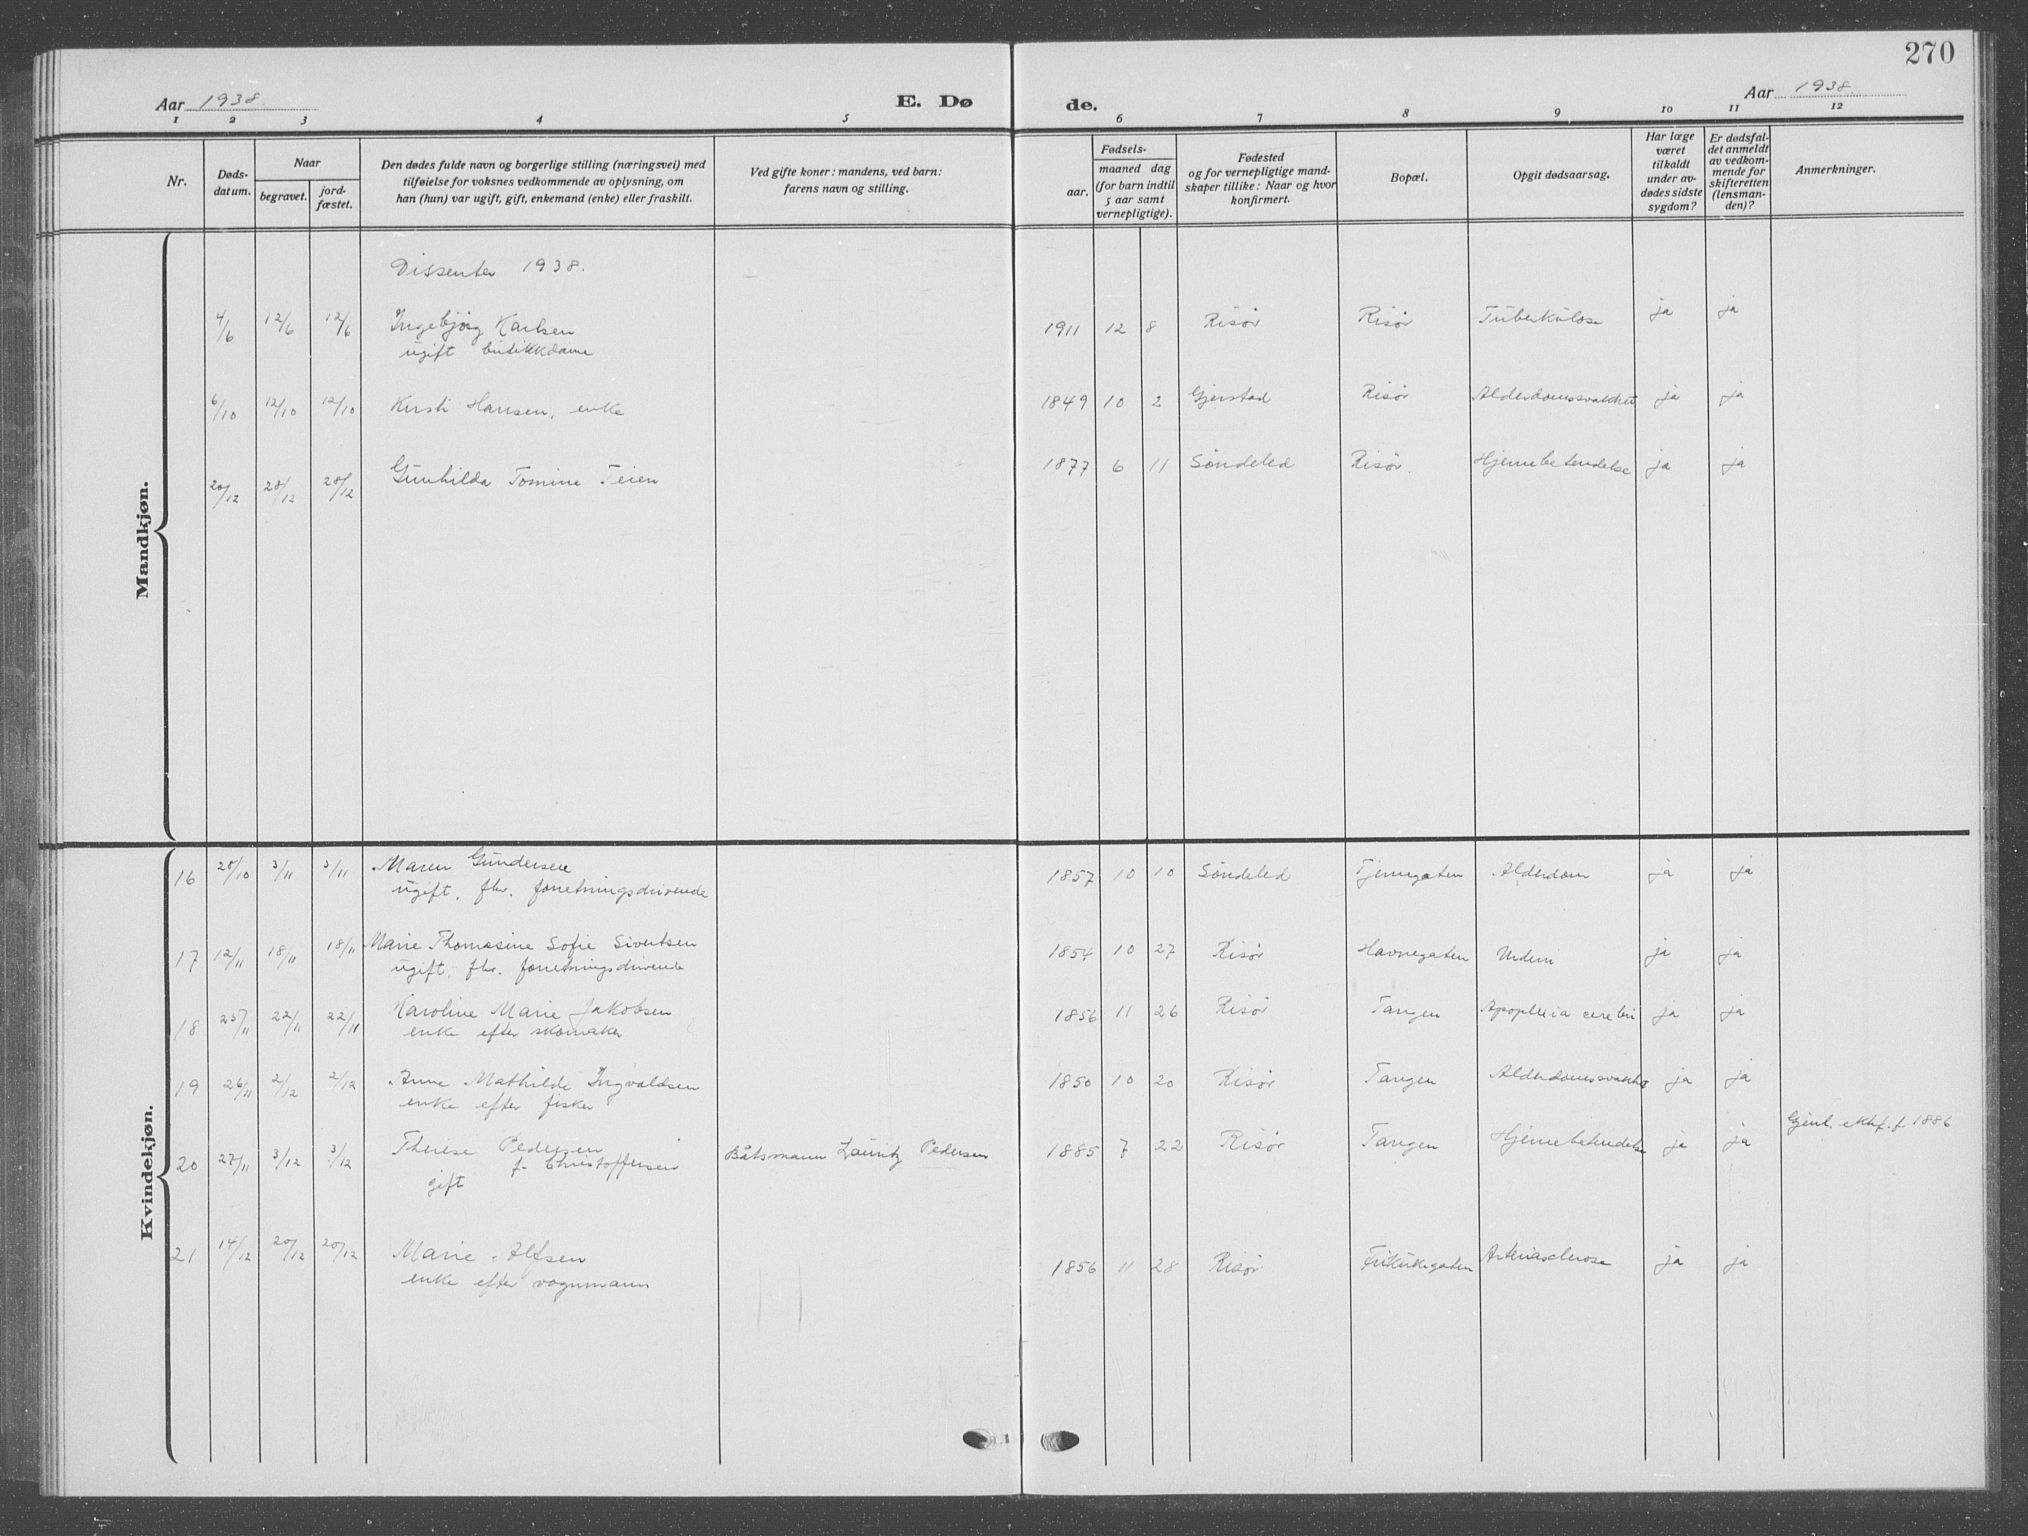 270
Aar 1938. E. Dø de. Aar 1938.
1 2 3 4 5 6 7 8 9 10 11 12
Nr.
Døds-
datum.
Naar
begravet.
jord-
fæstet.
Den dødes fulde navn og borgerlige stilling (næringsvei) med
tilføielse for voksnes vedkommende av oplysning, om
han (hun) var ugift, gift, enkemand (enke) eller fraskilt.
Ved gifte koner: mandens, ved barn:
farens navn og stilling.
Fødsels-
aar.
maaned dag
(for barn indtil
5 aar samt
vernepligtige).
Fødested
og for vernepligtige mand-
skaper tillike: Naar og hvor
konfirmert.
Bopæl.
Opgit dødsaarsag.
Har læge
været
tilkaldt
under av-
dødes sidste
sygdom?
Er dødsfal-
det anmeldt
av vedkom-
mende for
skifteretten
(lensman-
den)?
Anmerkninger.
Mandkjøn.
Dissenter 1938.
4/6 12/6 12/6 Ingebjørg Karlsen 1911 12 8 Risør Risør Tuberkulose ja ja
ugift butikkdame
6/10 12/10 12/10 Kirsti Hansen, enke 1849 10 2 Gjerstad Risør Alderdomssvakhet ja ja
20/12 28/12 28/12 Gunhilda Tomine Teien 1877 6 11 Søndeled Risør. Hjernebetendelse ja ja
Kvindekjøn.
16 28/10 3/11 3/11 Maren Gundersen 1857 10 10 Søndeled Tjernegaten Alderdom ja ja
ugift, fhv. forretningsdrivende
17 12/11 18/11 18/11 Marie Thomasine Sofie Sivertsen 1854 10 27 Risør Havnegaten ja ja
ugift, fhv. forretningsdrivende
18 22/11 22/11 Karoline Marie Jakobsen 1856 11 26 Risør Tangen Apoplexia cerebri ja ja
enke efter skomaker
19 26/11 2/12 2/12 Anne Mathilde Ingvaldsen 1850 10 20 Risør Tangen ja ja
enke efter fisker
20 27/11 3/12 3/12 Therese Pedersen Båtsmann Lauritz Pedersen 1885 7 22 Risør Tangen Hjernebetendelse ja ja 1886
f. Christoffersen
gift
21 14/12 20/12 20/12 Marie Alfsen 1856 11 28 Risør Arteriasclerose ja ja
enke efter vognmann